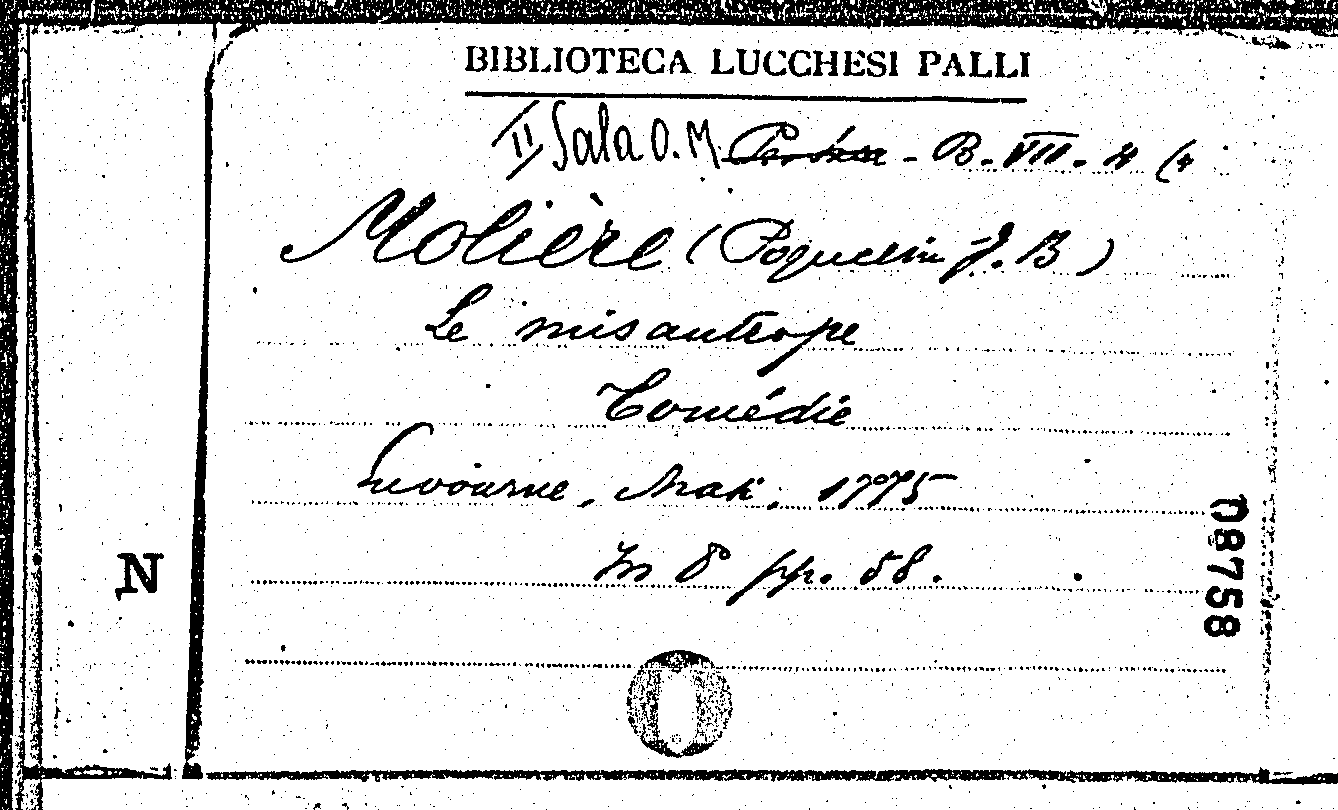 BIBLIOTECA LUCCHESI PALLI
II Sala O. M. - B. VII. 4 (4
Molière (Poquelin J. B)
Le misantrope
Comédie
Livourne, 1775
In 8° pp. 58.
N
08758